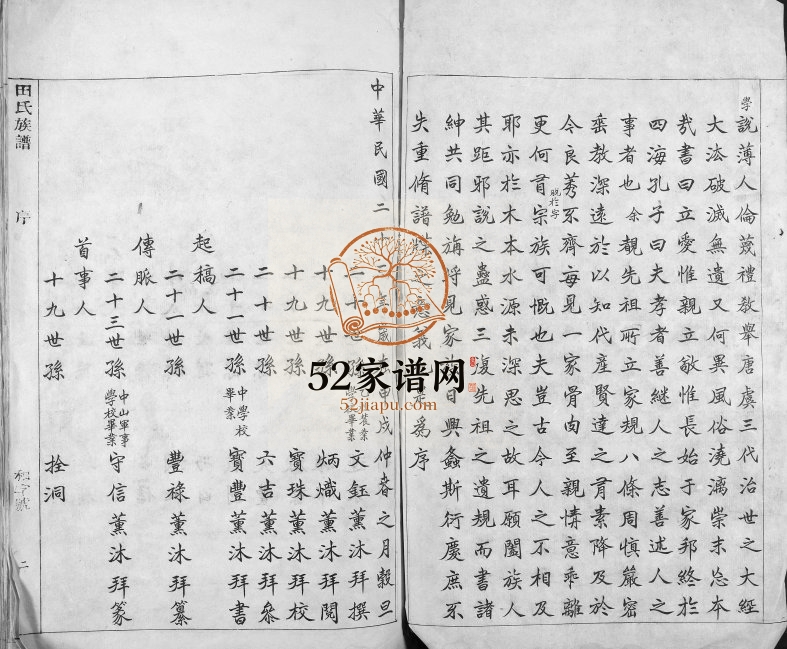 學說薄人倫蔑禮教舉唐虞三代治世之大經
大法破滅無遺又何異風俗澆漓崇末忘本
哉書曰立愛惟親立敬惟長始于家邦終於
四海孔子曰夫孝者善継人之志善述人之
事者也余覩先祖所立家規八條周慎嚴密
垂教深遠於以知代産賢達之有素降及於
今良莠不齊每見一家骨肉至親情意乖離
更何有宗族可慨也夫豈古今人之不相及
脱於字
耶亦於木本水源未深思之故耳願闔族人
其距邪說之蠱惑三復先祖之遺規而書諸
紳共同勉旃將見家日興螽斯衍慶庶不
失重脩譜意我是為序
中華民國二十歲甲戌仲春之月穀旦
二十世孫畢業文鈺薰沐拜撰
十九世孫炳熾薰沐拜閱
十九世孫寶珠薰沐拜校
二十世孫六吉薰沐拜叅
二十一世孫中學校畢業寶豐薰沐拜書
起稿人
二十一世孫豐祿薰沐拜纂
傳脈人
二十三世孫中山軍事學校畢業守信薰沐拜篆
首事人
十九世孫拴洞
田氏族譜
序
二
52家谱网
52jiapu.com